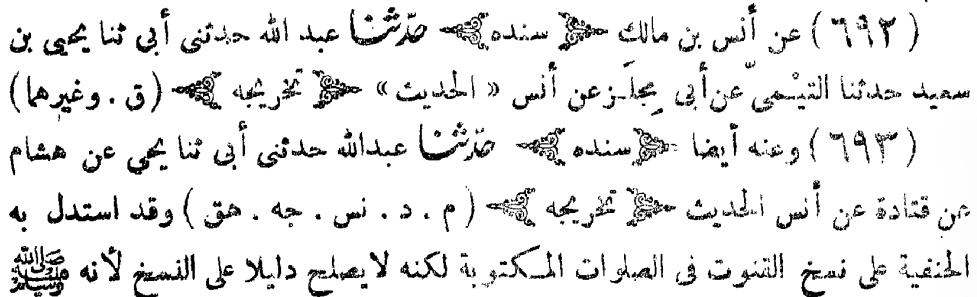 ( ٦٩٢ ) عن أنس بن مالك ﴿ سنده ﴾ حدّثنا عبد الله حدثنى أبى ثنا يحيى بن
سعيد حدثنا التيْمىّ عن أبى مِجلَـز عن أنس « الحديث » ﴿ تخريجه ﴾ ( ق . وغيرهما )
( ٦٩٣ ) وعنه أيضا ﴿ سنده ﴾ حدّثنا عبدالله حدثنى أبى ثنا يحيى عن هشام
عن قتادة عن أنس الحديث ﴿ تخريجه ﴾ ( م . د . نس . جه . هق ) وقد استدل به
الحنفية على نسخ القنوت فى الصلوات المكتوبة لكنه لايصلح دليلا على النسخ لأنه ﷺ